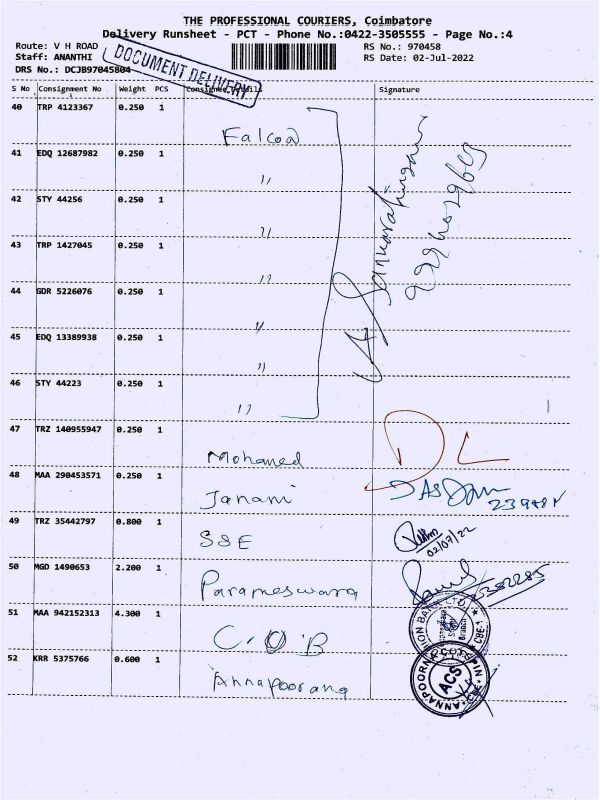 THE PROFESSIONAL COURIERS, Coimbatore
Delivery Runsheet - PCT - Phone No.:0422-3505555 - Page No.:4
Route: V H ROAD
RS No.: 970458
Staff: ANANTHI
RS Date: 02-Jul-2022
DRS No.: DCJB97045804
DOCUMENT DELIVERY
S No Consignment No Weight PCS Consignee Details Signature
40 TRP 4123367 0.250 1
Falcon
41 EDQ 12687982 0.250 1
"
42 STY 44256 0.250 1
"
43 TRP 1427045 0.250 1
"
44 GDR 5226076 0.250 1
"
45 EDQ 13389938 0.250 1
"
46 STY 44223 0.250 1
"
47 TRZ 140955947 0.250 1
Mohamed DL
48 MAA 290453571 0.250 1
Janani
49 TRZ 35442797 0.800 1
SSE 02/07/22
50 MGD 1490653 2.200 1
Parameswara
51 MAA 942152313 4.300 1
C.O.B
52 KRR 5375766 0.600 1
Annapoorana ACS